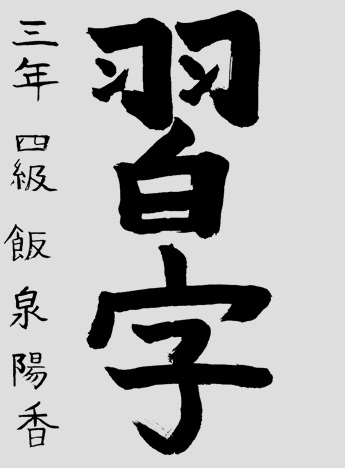 習字
三年 四級 飯泉陽香